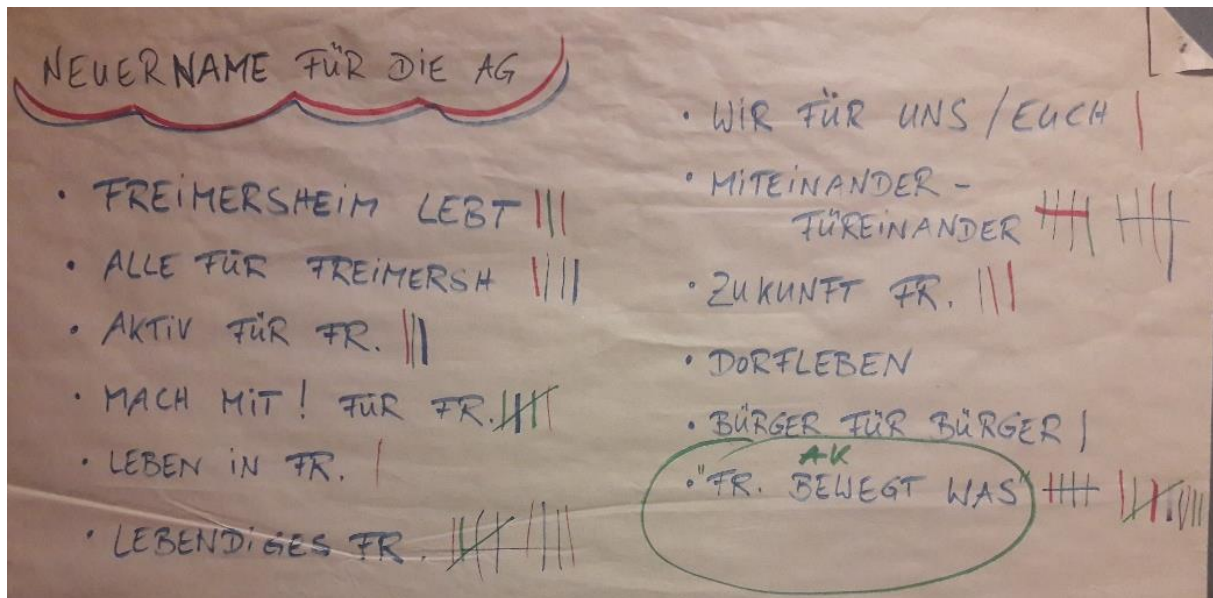 NEUER NAME FÜR DIE AG
• FREIMERSHEIM LEBT
• ALLE FÜR FREIMERSH
• AKTIV FÜR FR.
• MACH MIT! FÜR FR.
• LEBEN IN FR.
• LEBENDIGES FR.
• WIR FÜR UNS / EUCH
• MITEINANDER -
FÜREINANDER
• ZUKUNFT FR.
• DORFLEBEN
• BÜRGER FÜR BÜRGER
AK
• "FR. BEWEGT WAS"